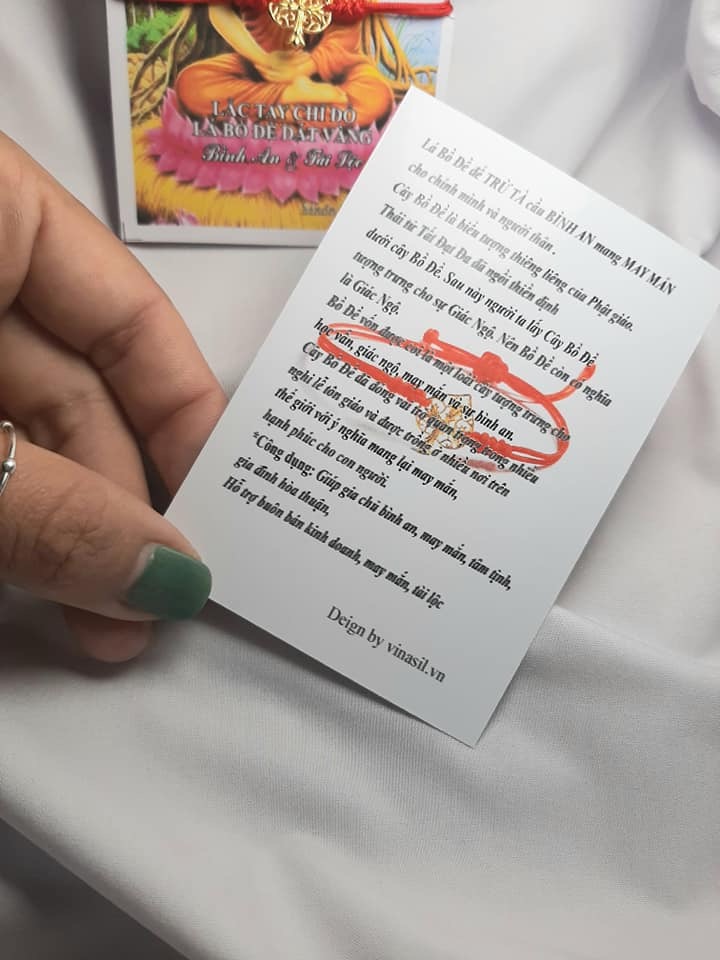 LẮC TAY CHỈ ĐỎ
LÁ BỒ ĐỀ DÁT VÀNG
Bình An & Tài Lộc
Lá Bồ Đề để TRỪ TÀ cầu BÌNH AN mang MAY MẮN
cho chính mình và người thân .
Cây Bồ Đề là biểu tượng thiêng liêng của Phật giáo.
Thái tử Tất Đạt Đa đã ngồi thiền định
dưới cây Bồ Đề. Sau này người ta lấy Cây Bồ Đề
tượng trưng cho sự Giác Ngộ. Nên Bồ Đề còn có nghĩa
là Giác Ngộ.
Bồ Đề vốn được coi là một loài cây tượng trưng cho
học vấn, giác ngộ, may mắn và sự bình an.
Cây Bồ Đề đã đóng vai trò quan trọng trong nhiều
nghi lễ tôn giáo và được trồng ở nhiều nơi trên
thế giới với ý nghĩa mang lại may mắn,
hạnh phúc cho con người.
*Công dụng: Giúp gia chủ bình an, may mắn, tâm tịnh,
gia đình hòa thuận,
Hỗ trợ buôn bán kinh doanh, may mắn, tài lộc
Deign by vinasil.vn